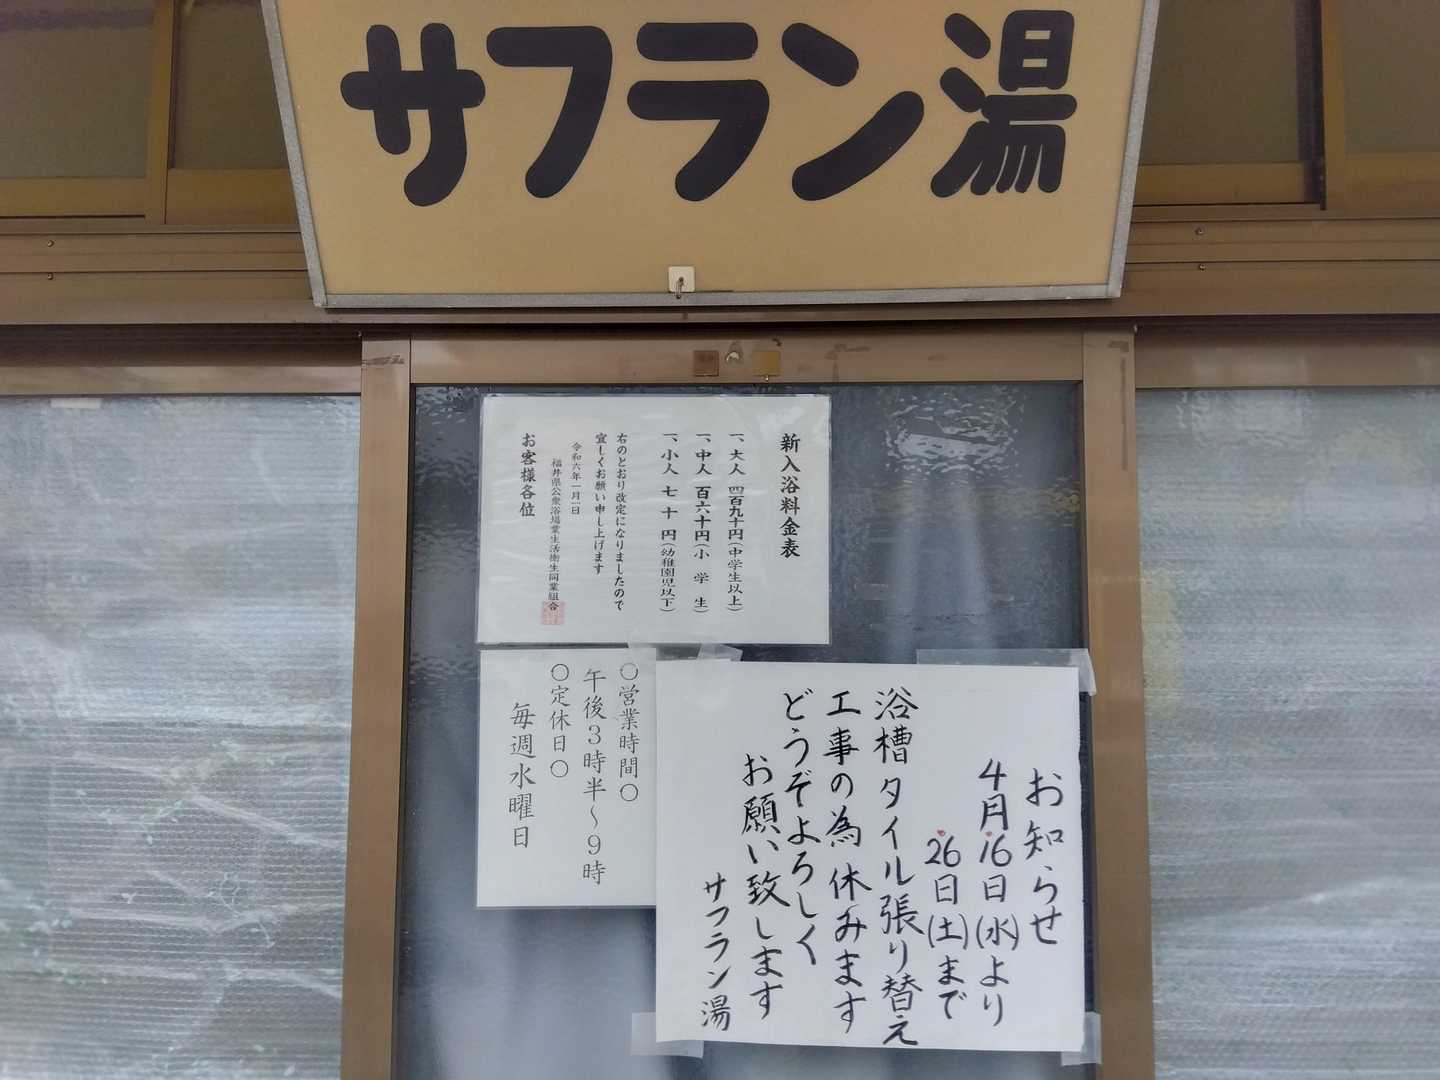 サフラン湯
新入浴料金表
一、大人 四百九十円(中学生以上)
一、中人 百六十円(小学生)
一、小人 七十円(幼稚園児以下)
右のとおり改定になりましたので
宜しくお願い申し上げます
令和六年一月一日
福井県公衆浴場業生活衛生同業組合
お客様各位
○営業時間○
午後3時半~9時
○定休日○
毎週水曜日
お知らせ
4月16日(水)より
26日(土)まで
浴槽タイル張り替え
工事の為休みます
どうぞよろしく
お願い致します
サフラン湯